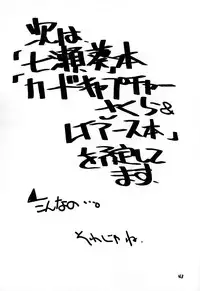 次は、
「七瀬葵本」
「カードキャプター
さくら&
レイアース本」
を予定して
ます。
こんなの…。
それじゃね。